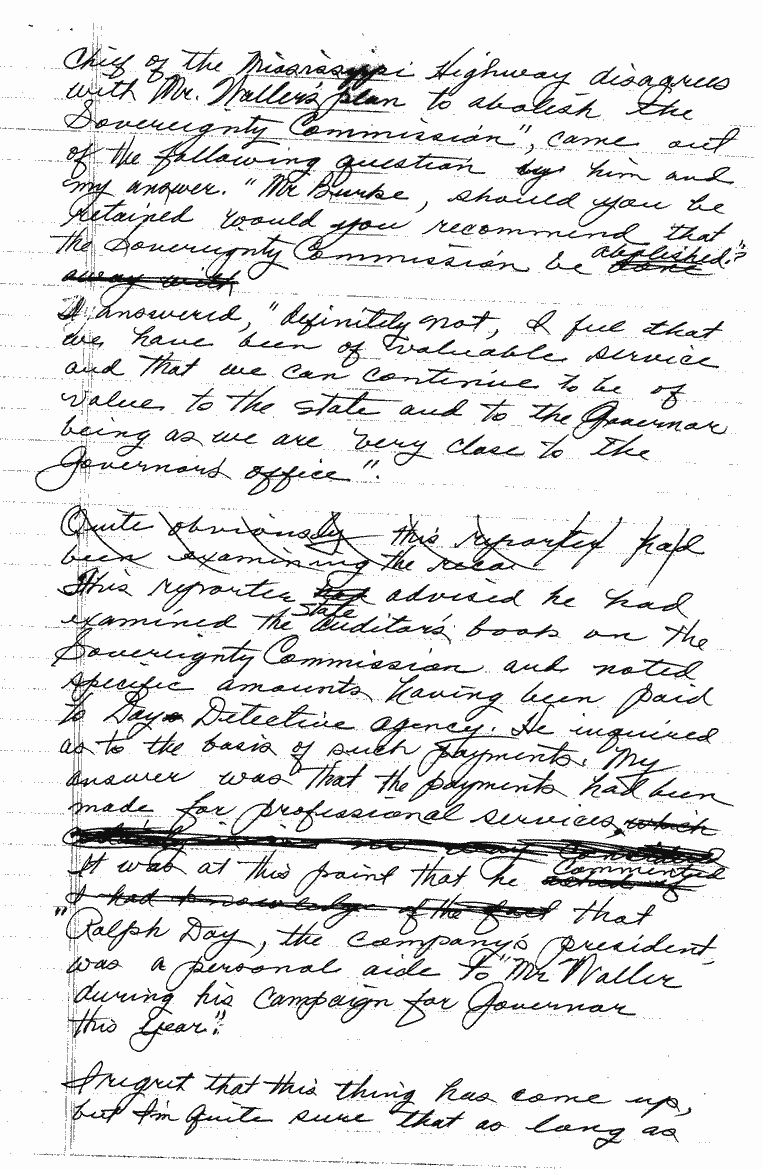 Chief of the Mississippi Highway disagrees
with Mr. Waller's plan to abolish the
Sovereignty Commission", came out
of the following question by him and
my answer. "Mr Burke, should you be
retained would you recommend that
the Sovereignty Commission be done abolished."
away with
I answered, "definitely not, I feel that
we have been of valuable service
and that we can continue to be of
value to the state and to the Governor
being as we are very close to the
Governor's office".
Quite obviously this reporter had
been examining the
This reporter had advised he had
examined the state auditor's book on the
Sovereignty Commission and noted
specific amounts having been paid
to Day Detective agency. He inquired
as to the basis of such payments. My
answer was that the payments had been
made for professional services, which
It was at this point that he asked if commented
I had knowledge of the fact that
"Ralph Day, the company's president,
was a personal aide to "Mr Waller
during his campaign for Governor
this year".
I regret that this thing has come up,
but I'm quite sure that as long as